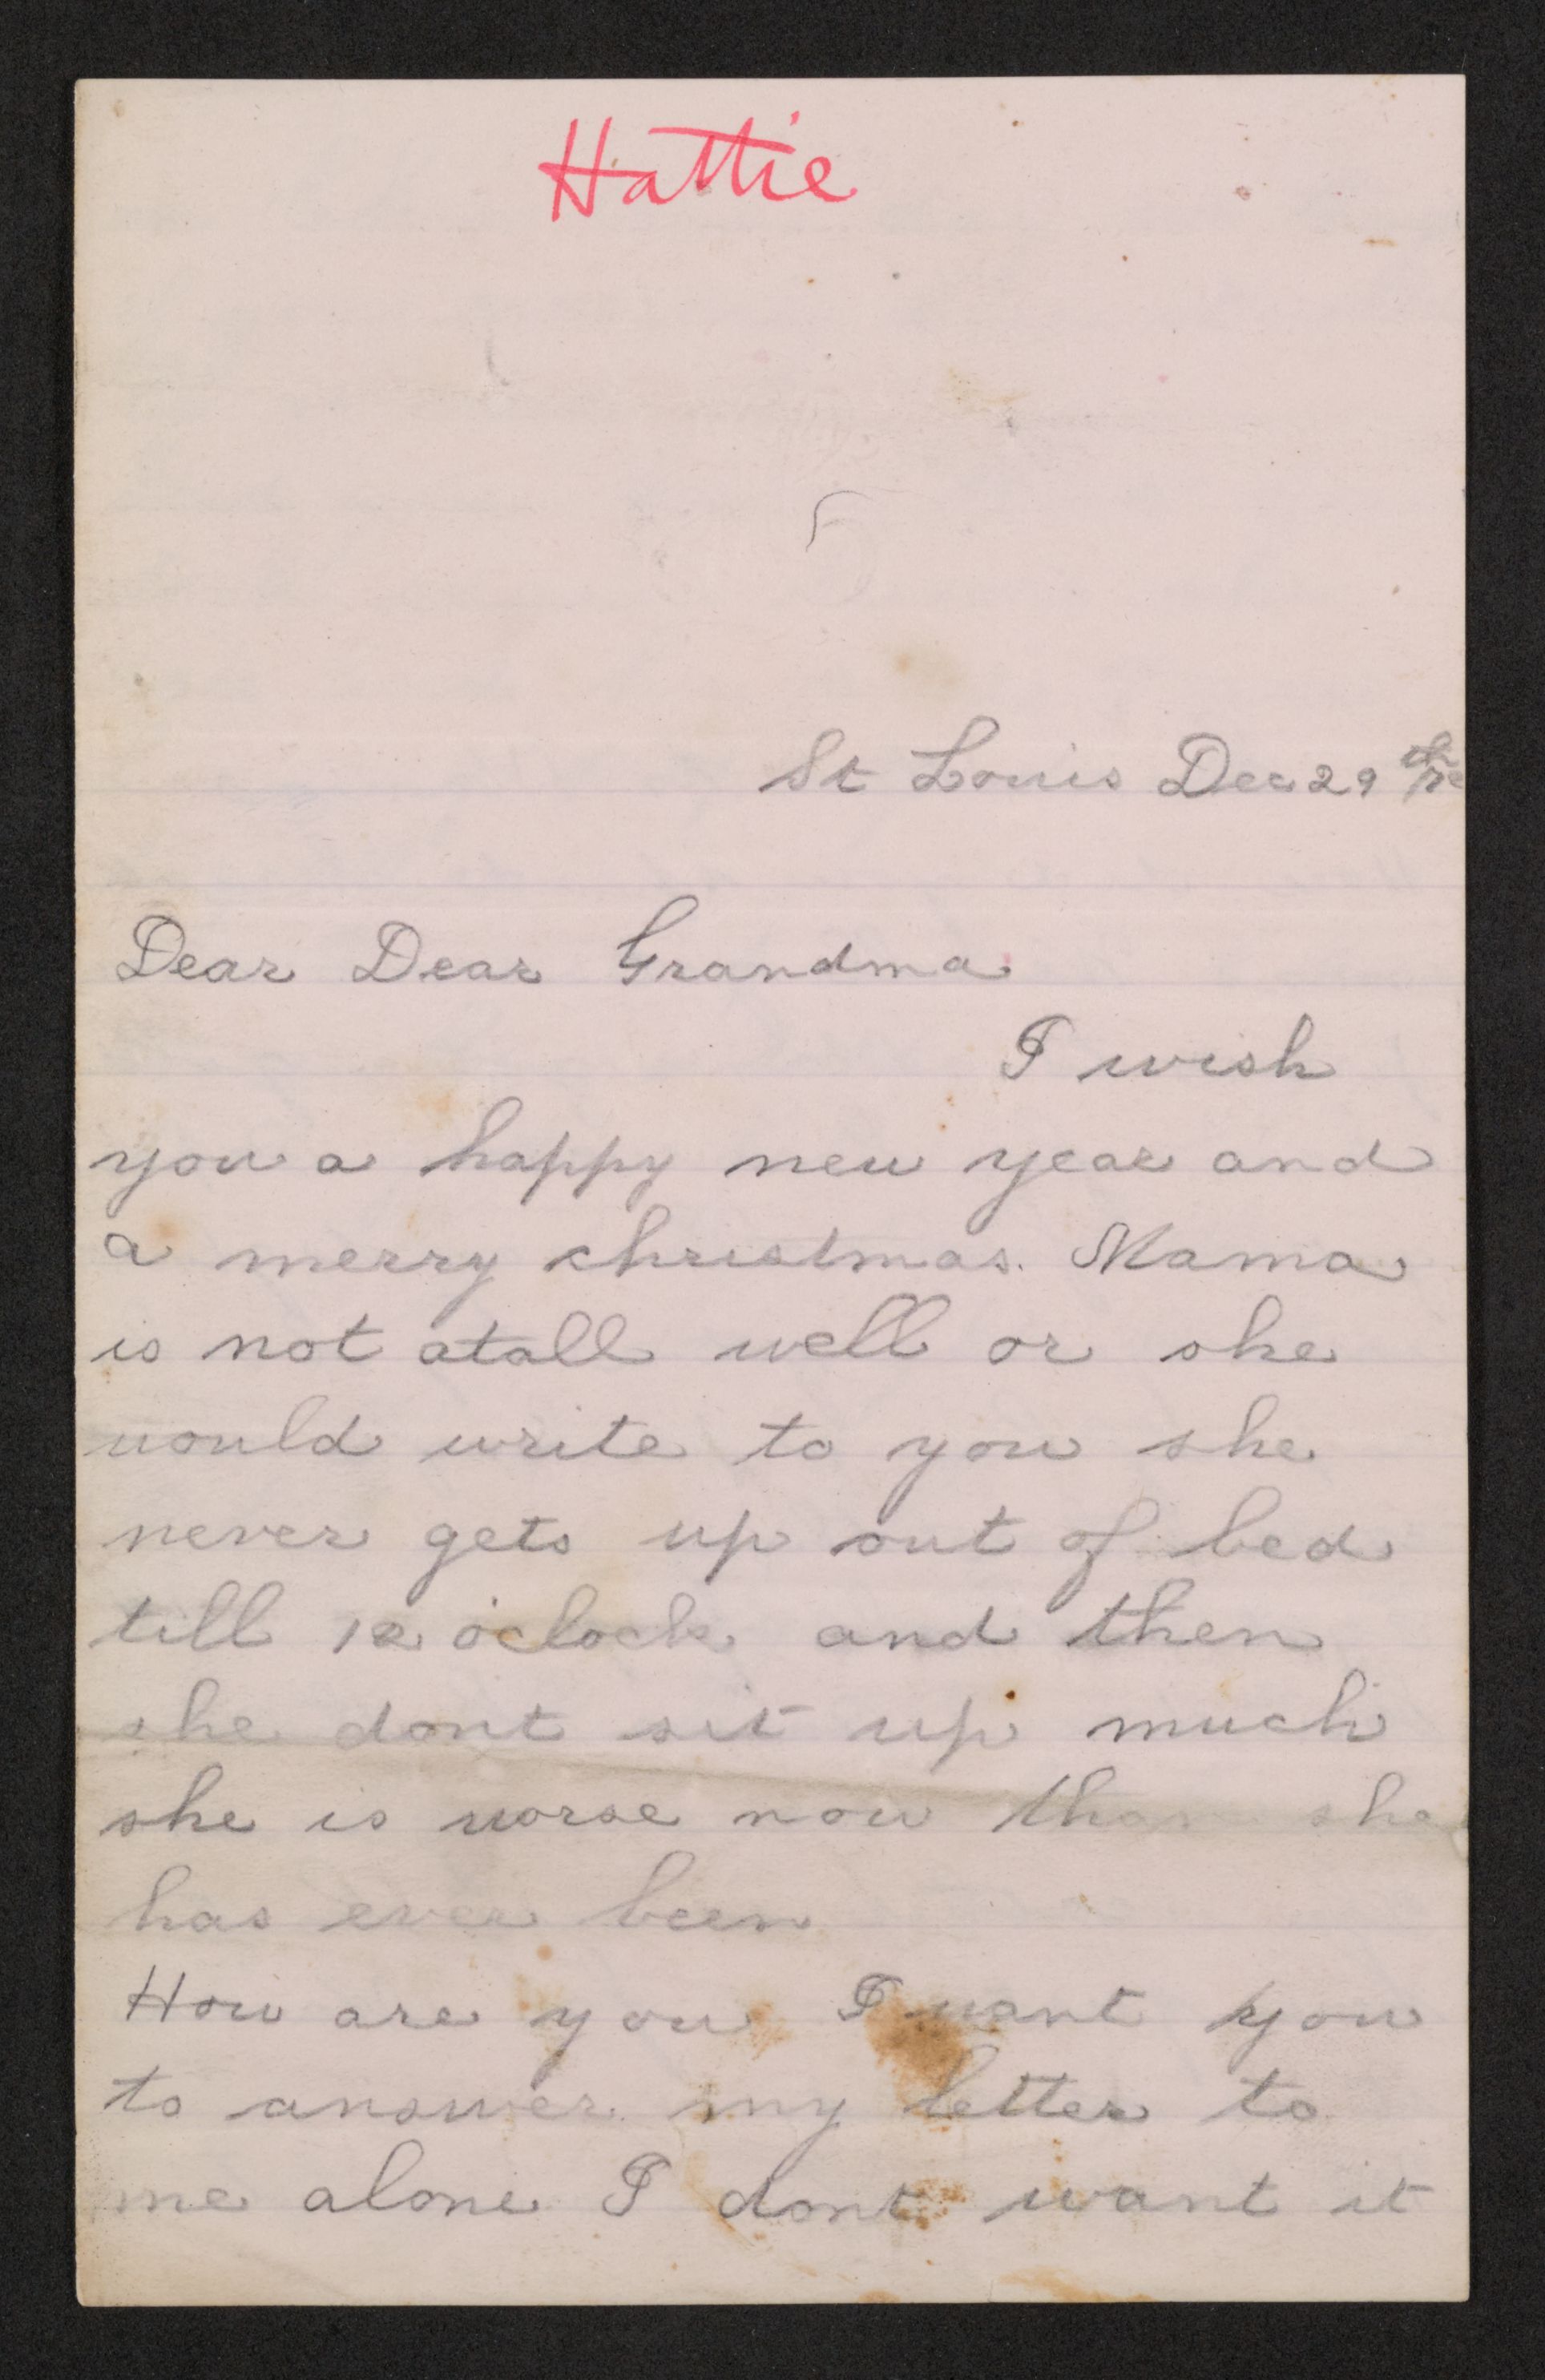 Hattie
St Louis Dec 29th
Dear Dear Grandma
I wish
you a happy new year and
a merry christmas. Mama
is not atall well or she
would write to you she
never gets up out of bed
till 12 o'clock and then
she dont sit up much
she is worse now than she
has ever been
How are you I want you
to answer my letter to
me alone I dont want it